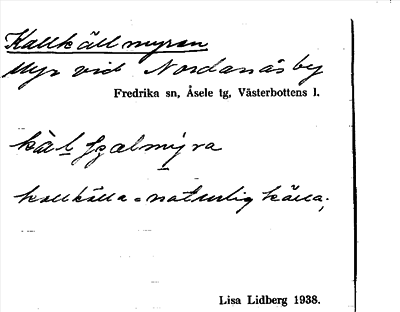 Kallkällmyran
Myr vid Nordanås by
Fredrika sn, Åsele tg, Västerbottens l.
kallkälla = naturlig källa;
Lisa Lidberg 1938.